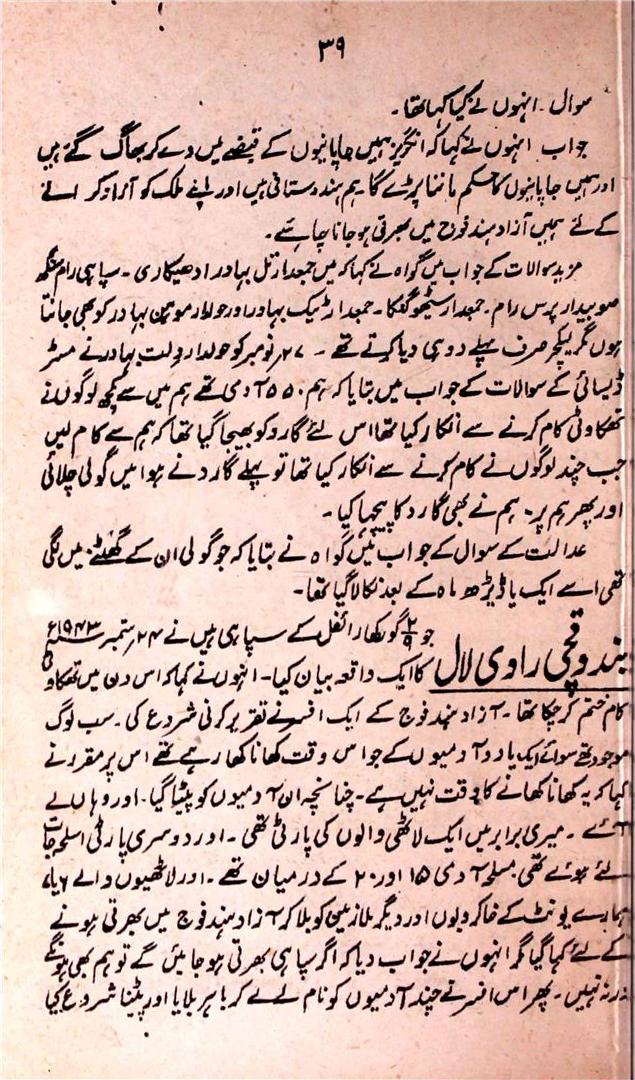 ۳۹
سوال۔ انہوں نے کیا کہا تھا۔
جواب انہوں نے کہا کہ انگریز ہمیں جاپانیوں کے قبضے میں دے کر بھاگ گئے ہیں
اور ہمیں جاپانیوں کا حکم ماننا پڑے گا ہم ہندوستانی ہیں اور اپنے ملک کو آزاد کرانے
کے لئے ہمیں آزاد ہند فوج میں بھرتی ہو جانا چاہئے۔
مزید سوالات کے جواب میں گواہ نے کہا کہ میں جمعدار تل بہادر ادھیکاری۔ سپاہی رام سنگھ
صوبیدار پرس رام۔ جمعدار ۔ جمعدار ٹیک بہادر اور حولدار موہن بہادر کو بھی جانتا
ہوں مگر لیکچر صرف پہلے دو ہی دیا کرتے تھے ۔ ۲۷ نومبر کو حولدار دولت بہادر نے مسٹر
ڈیسائی کے سوالات کے جواب میں بتایا کہ ہم ۵۵۰ آدمی تھے ہم میں سے کچھ لوگوں نے
تھکاوٹی کام کرنے سے انکار کیا تھا اس لئے گارد کو بھیجا گیا تھا کہ ہم سے کام لیں
جب چند لوگوں نے کام کرنے سے انکار کیا تھا تو پہلے گارد نے ہوا میں گولی چلائی
اور پھر ہم پر۔ ہم نے بھی گارد کا پیچھا کیا۔
عدالت کے سوال کے جواب میں گواہ نے بتایا کہ جو گولی ان کے گھٹنے میں لگی
تھی اسے ایک یا ڈیڑھ ماہ کے بعد نکالا گیا تھا۔
بندوقچی راوی لال جو ۲/۹ گورکھا رائفل کے سپاہی ہیں نے ۲۴ ستمبر ۱۹۴۳ء
کا ایک واقعہ بیان کیا۔ انہوں نے کہا کہ اس دن میں تھکاوٹی
کام ختم کر چکا تھا۔ آزاد ہند فوج کے ایک افسر نے تقریر کرنی شروع کی۔ سب لوگ
موجود تھے سوائے ایک یا دو آدمیوں کے جو اس وقت کھانا کھا رہے تھے اس پر مقرر نے
کہا کہ یہ کھانا کھانے کا وقت نہیں ہے۔ چنانچہ ان آدمیوں کو پیٹا گیا۔ اور وہاں لے
آئے ۔ میری برابر میں ایک لاٹھی والوں کی پارٹی تھی۔ اور دوسری پارٹی اسلحہ جات
لئے ہوئے تھی مسلح آدمی ۱۵ اور ۲۰ کے درمیان تھے۔ اور لاٹھیوں والے ۶ یا
ہمارے یونٹ کے خاکروبوں اور دیگر ملازمین کو بلا کر آزاد ہند فوج میں بھرتی ہونے
کے لئے کہا گیا مگر انہوں نے جواب دیا کہ اگر سپاہی بھرتی ہو جائیں گے تو ہم بھی ہونگے
ورنہ نہیں۔ پھر اس افسر نے چند آدمیوں کو نام لے لے کر باہر بلایا اور پیٹنا شروع کیا